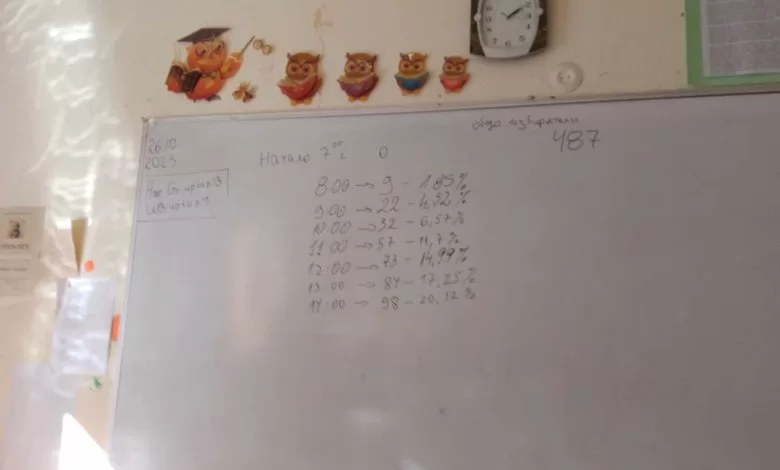 общо избиратели
487
26.10
2023
Начало 7⁰⁰ г. 0
8:00 → 9 - 1.85%
9:00 → 22 - 4,52%
10:00 → 32 - 6,57%
11:00 → 57 - 11,7%
12:00 → 73 - 14,99%
13:00 → 84 - 17,25%
14:00 → 98 - 20,12%